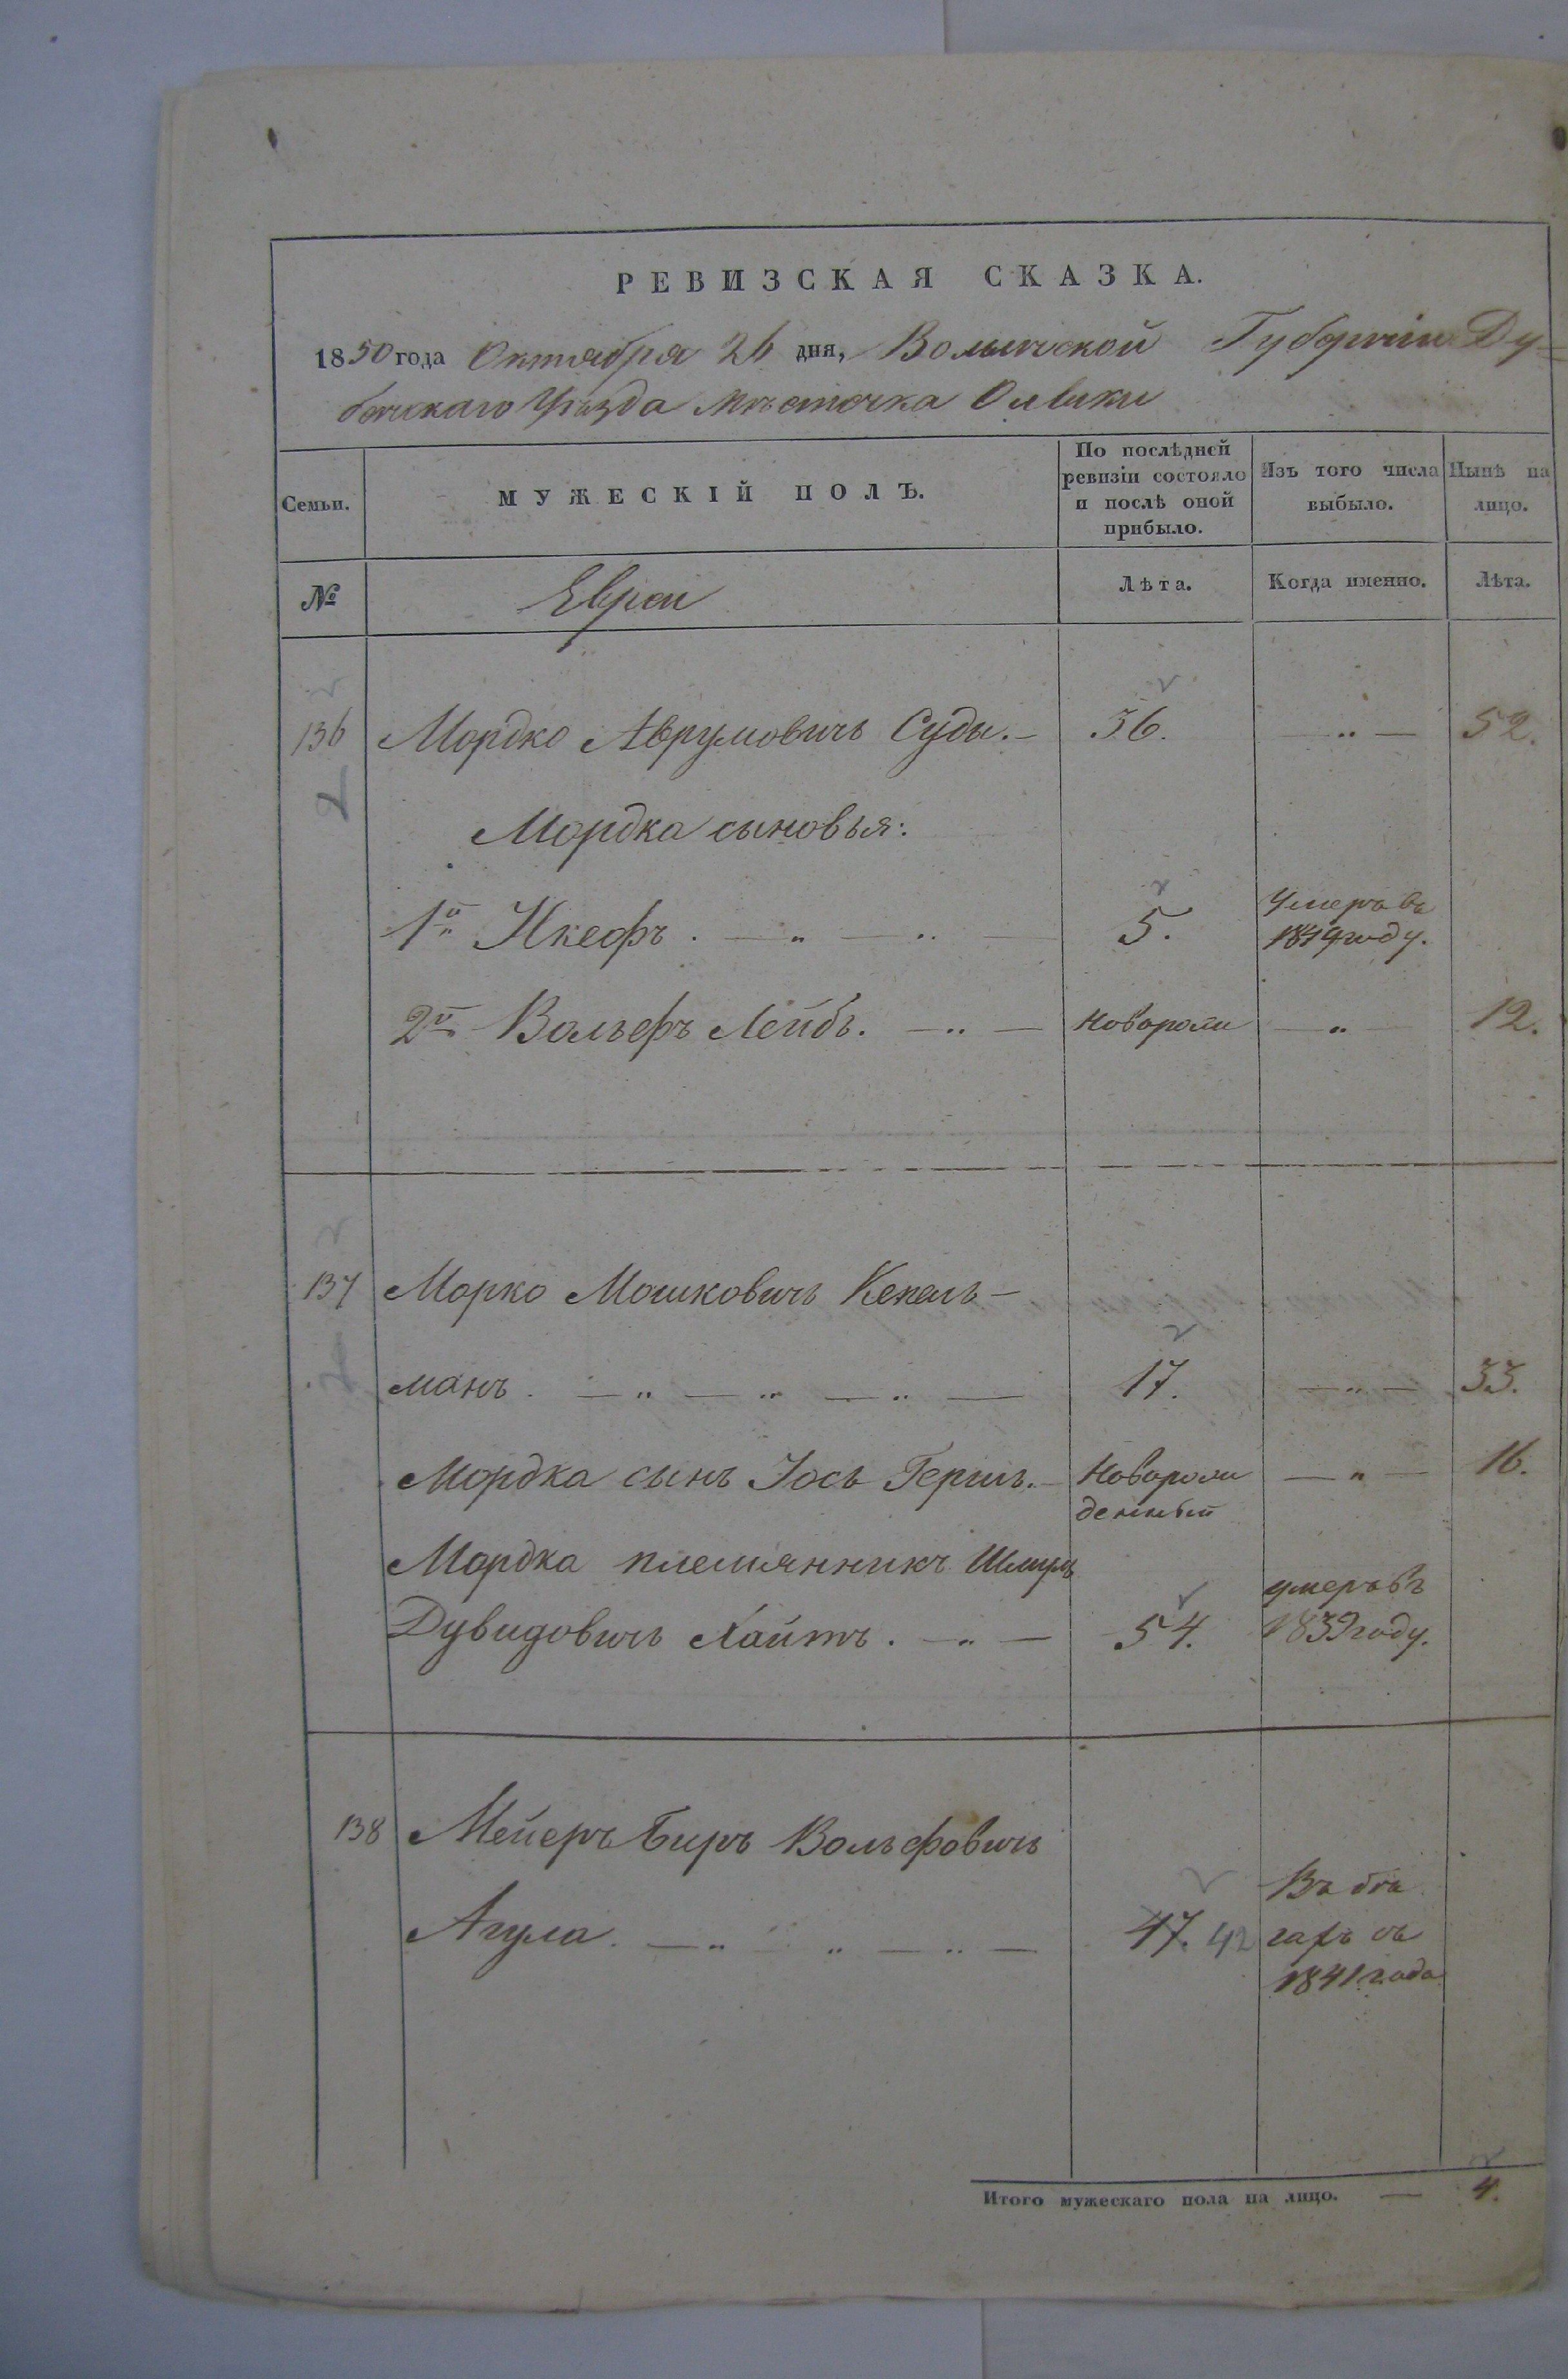 РЕВИЗСКАЯ СКАЗКА.
1850 года Октября 26 дня, Волынской Губерніи Ду=
бенскаго Уѣзда мѣстечка Олыки
Семьи.
МУЖЕСКІЙ ПОЛЪ.
По послѣдней ревизіи состояло и послѣ оной прибыло.
Изъ того числа выбыло.
Нынѣ на лицо.
№
Евреи
Лѣта.
Когда именно.
Лѣта.
136 Мордко Аврумовичъ Суды. 36. 52.
Мордка сыновья:
1й Икефъ. 5. Умеръ въ
1849 году.
2й Вольфъ Лейбъ. Новорож 12.
137 Морко Мошковичъ Кекель-
манъ. 17. 33.
Мордка сынъ Іось Гершъ. Новорож 16.
денный
Мордка племянникъ Шмуль
умеръ въ
Дувидовичъ Хайтъ. 54. 1839 году.
138 Мейеръ Беръ Вольфовичъ
Въ бѣ
Агула. 47. 42 гахъ съ
1841 года
Итого мужескаго пола на лицо. — 4.